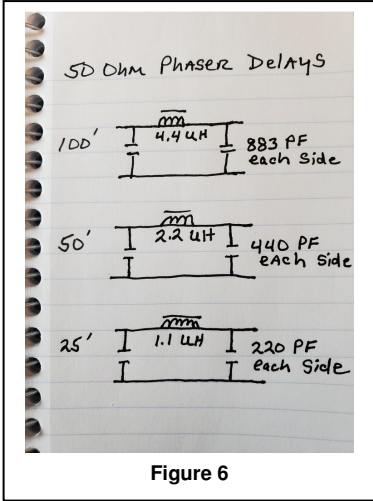 50 Ohm PHASER DelAYS
100'
4.4 uH
883 PF
each Side
50'
2.2 uH
440 PF
eAch Side
25'
1.1 uH
220 PF
each Side
Figure 6